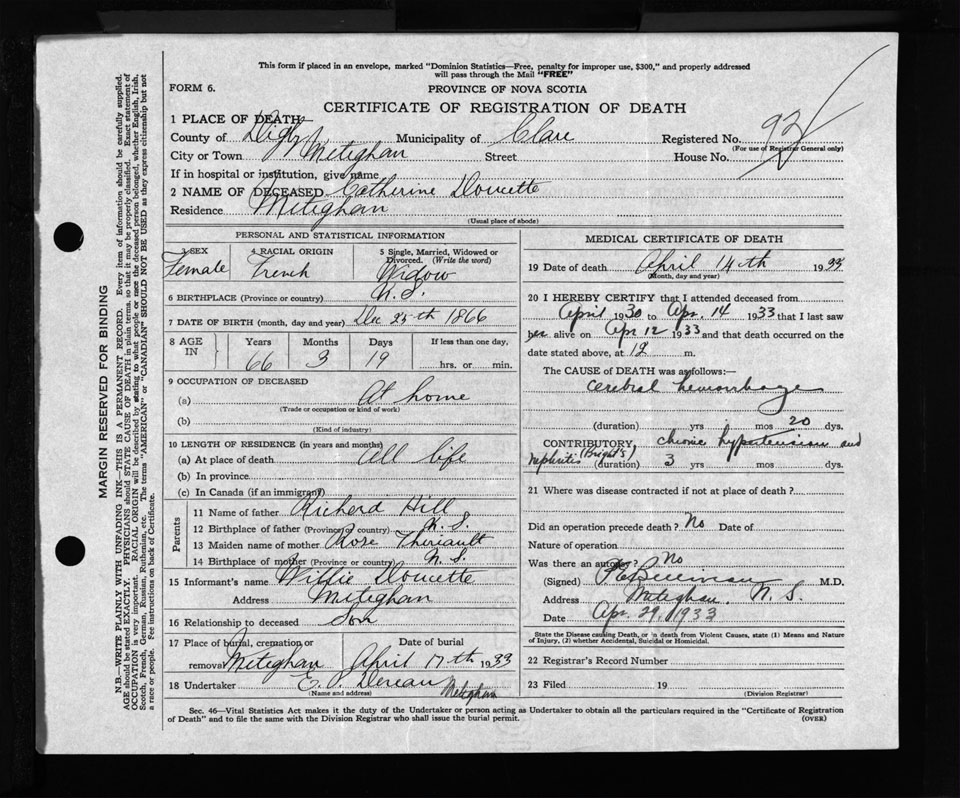 This form if placed in an envelope, marked "Dominion Statistics—Free, penalty for improper use, $300," and properly addressed
will pass through the Mail "FREE"
FORM 6.
PROVINCE OF NOVA SCOTIA
CERTIFICATE OF REGISTRATION OF DEATH
1 PLACE OF DEATH
County of Digby Municipality of Clare Registered No. 92
(For use of Registrar General only)
City or Town Meteghan Street House No.
If in hospital or institution, give name
2 NAME OF DECEASED Catherine Doucette
Residence Meteghan
(Usual place of abode)
PERSONAL AND STATISTICAL INFORMATION
3 SEX 4 RACIAL ORIGIN 5 Single, Married, Widowed or
Divorced. (Write the word)
Female French Widow
6 BIRTHPLACE (Province or country) N.S.
7 DATE OF BIRTH (month, day and year) Dec 25th 1866
8 AGE IN Years Months Days If less than one day,
66 3 19 hrs. or min.
9 OCCUPATION OF DECEASED
(a) At home
(Trade or occupation or kind of work)
(b)
(Kind of industry)
10 LENGTH OF RESIDENCE (in years and months)
(a) At place of death All life
(b) In province
(c) In Canada (if an immigrant)
Parents
11 Name of father Richard Hill
12 Birthplace of father (Province or country) N.S.
13 Maiden name of mother Rose Theriault
14 Birthplace of mother (Province or country) N.S.
15 Informant's name Willie Doucette
Address Meteghan
16 Relationship to deceased Son
17 Place of burial, cremation or Date of burial
removal Meteghan April 17th 1933
18 Undertaker E. P. Meteghan
(Name and address)
MEDICAL CERTIFICATE OF DEATH
19 Date of death April 14th 1933
(Month, day and year)
20 I HEREBY CERTIFY that I attended deceased from
April 1930 to Apr. 14 1933 that I last saw
her alive on Apr 12 1933 and that death occurred on the
date stated above, at 12 m.
The CAUSE of DEATH was as follows:—
cerebral hemorrhage
(duration) yrs mos 20 dys.
CONTRIBUTORY, chronic hypertension and
nephritis (Bright's) (duration) 3 yrs mos dys.
21 Where was disease contracted if not at place of death?
Did an operation precede death? No Date of
Nature of operation
Was there an autopsy? No
(Signed) M.D.
Address Meteghan, N. S.
Date Apr. 29, 1933
State the Disease causing Death, or in death from Violent Causes, state (1) Means and Nature
of Injury, (2) whether Accidental, Suicidal or Homicidal.
22 Registrar's Record Number
23 Filed 19
(Division Registrar)
Sec. 46—Vital Statistics Act makes it the duty of the Undertaker or person acting as Undertaker to obtain all the particulars required in the "Certificate of Registration
of Death" and to file the same with the Division Registrar who shall issue the burial permit. (OVER)
MARGIN RESERVED FOR BINDING
N.B.—WRITE PLAINLY WITH UNFADING INK—THIS IS A PERMANENT RECORD. Every item of information should be carefully supplied.
AGE should be stated EXACTLY. PHYSICIANS should STATE CAUSE OF DEATH in plain terms, so that it may be properly classified. Exact statement of
OCCUPATION is very important. RACIAL ORIGIN will be described by stating to what people or race the deceased person belonged, whether English, Irish,
Scotch, French, German, Russian, Ruthenian, etc. The terms "AMERICAN" or "CANADIAN" SHOULD NOT BE USED as they express citizenship but not
a race or people. Fee instructions on back of Certificate.